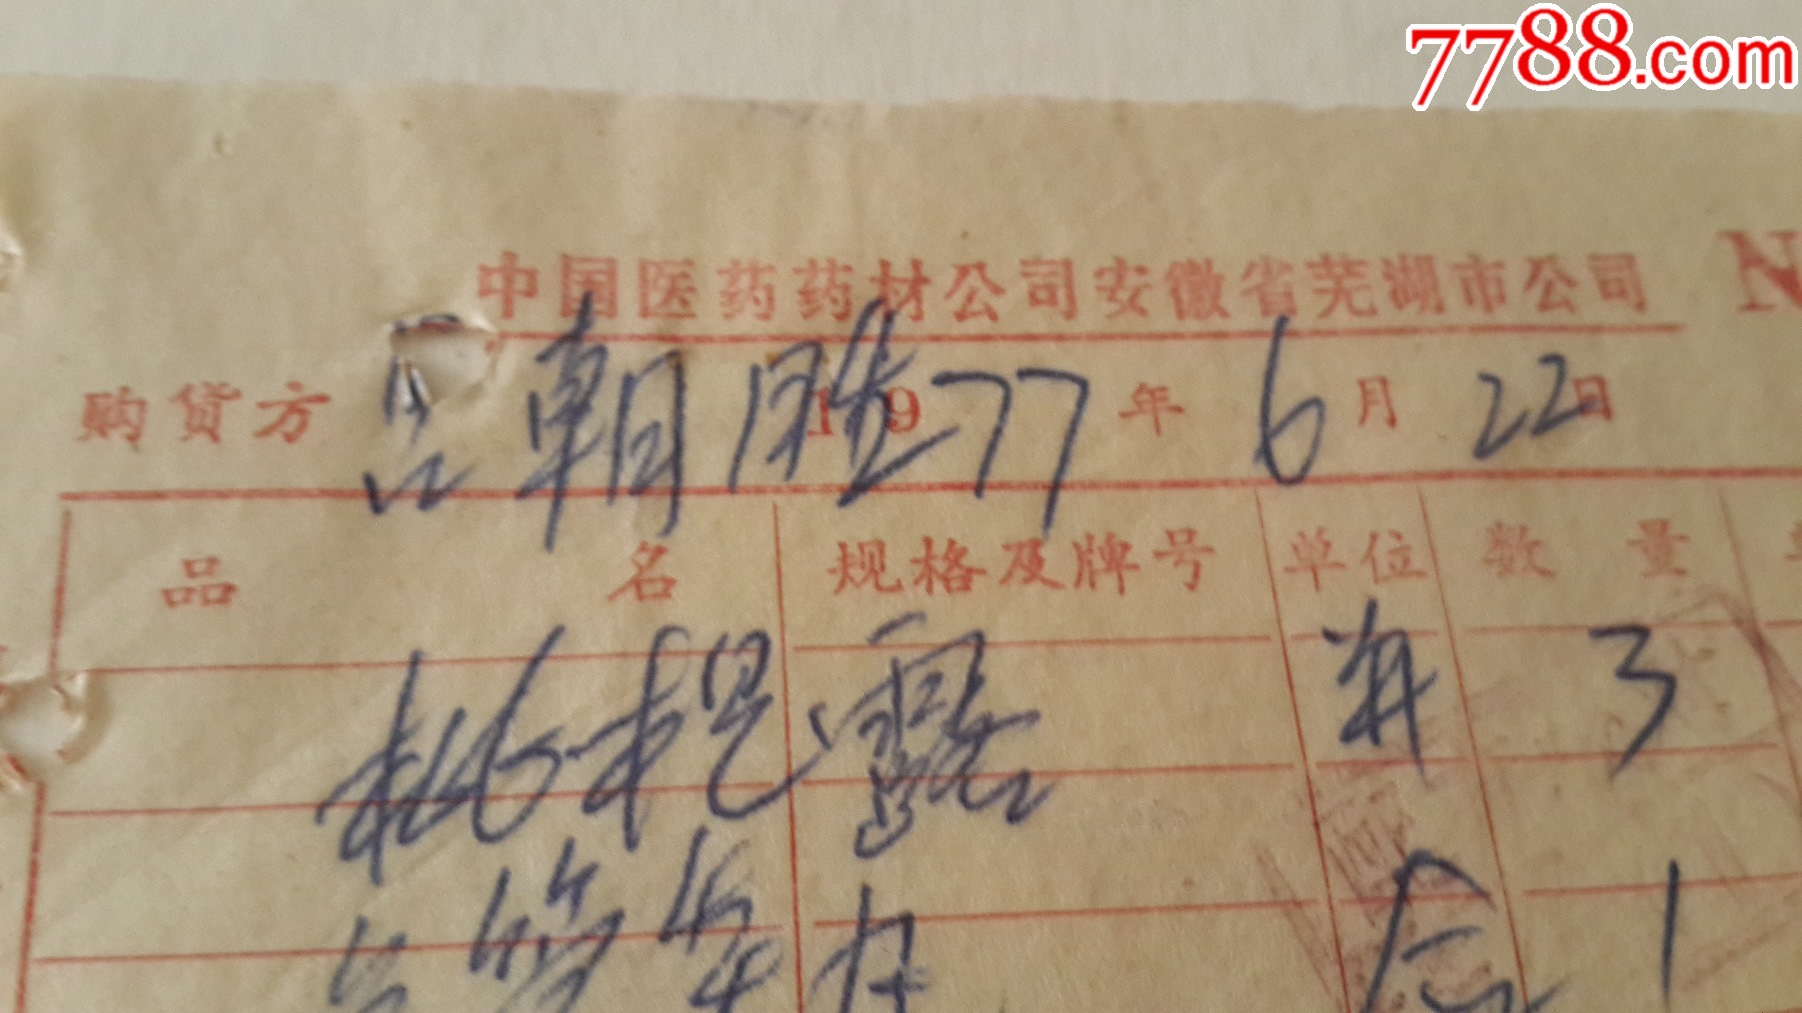 7788.com
中国医药药材公司安徽省芜湖市公司 N
购货方 吕朝胜 1977年6月22日
品名 规格及牌号 单位 数量
枇杷露 并 3
合 1